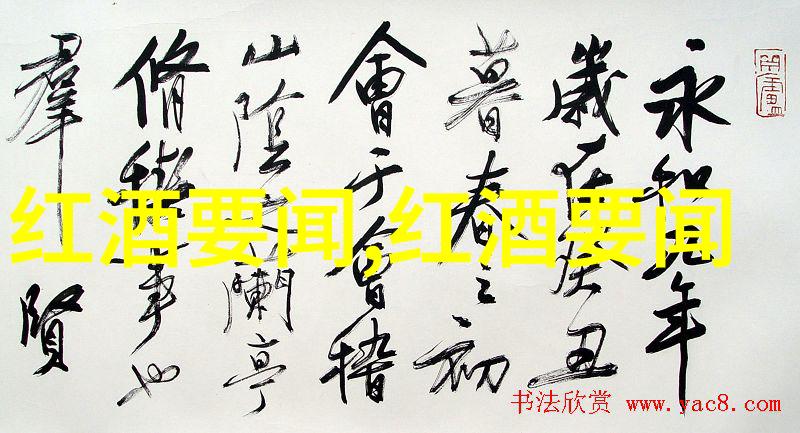 永和九年
歲在癸丑
暮春之初
會于會稽
山陰之蘭亭
脩禊事也
羣賢
红酒要闻,红酒要闻
书法欣赏 www.yac8.com